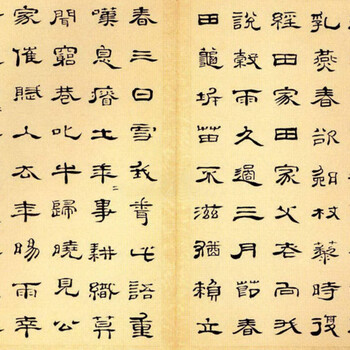 乳燕春欲杖藜時復
經田家田家父老向我
說穀雨久過三月節春
田龜坼苗不滋猶賴立
春三日雪我此語重
嘆息瘠土年〻事耕織莫
聞窮巷叱牛歸曉見公
家催賦入去年暘雨幸